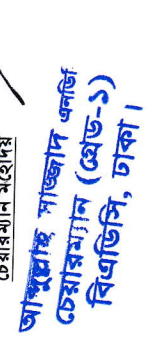 চেয়ারম্যান মহোদয়
আব্দুল্লাহ সাজ্জাদ এনডিসি
চেয়ারম্যান (গ্রেড-১)
বিএডিসি, ঢাকা।